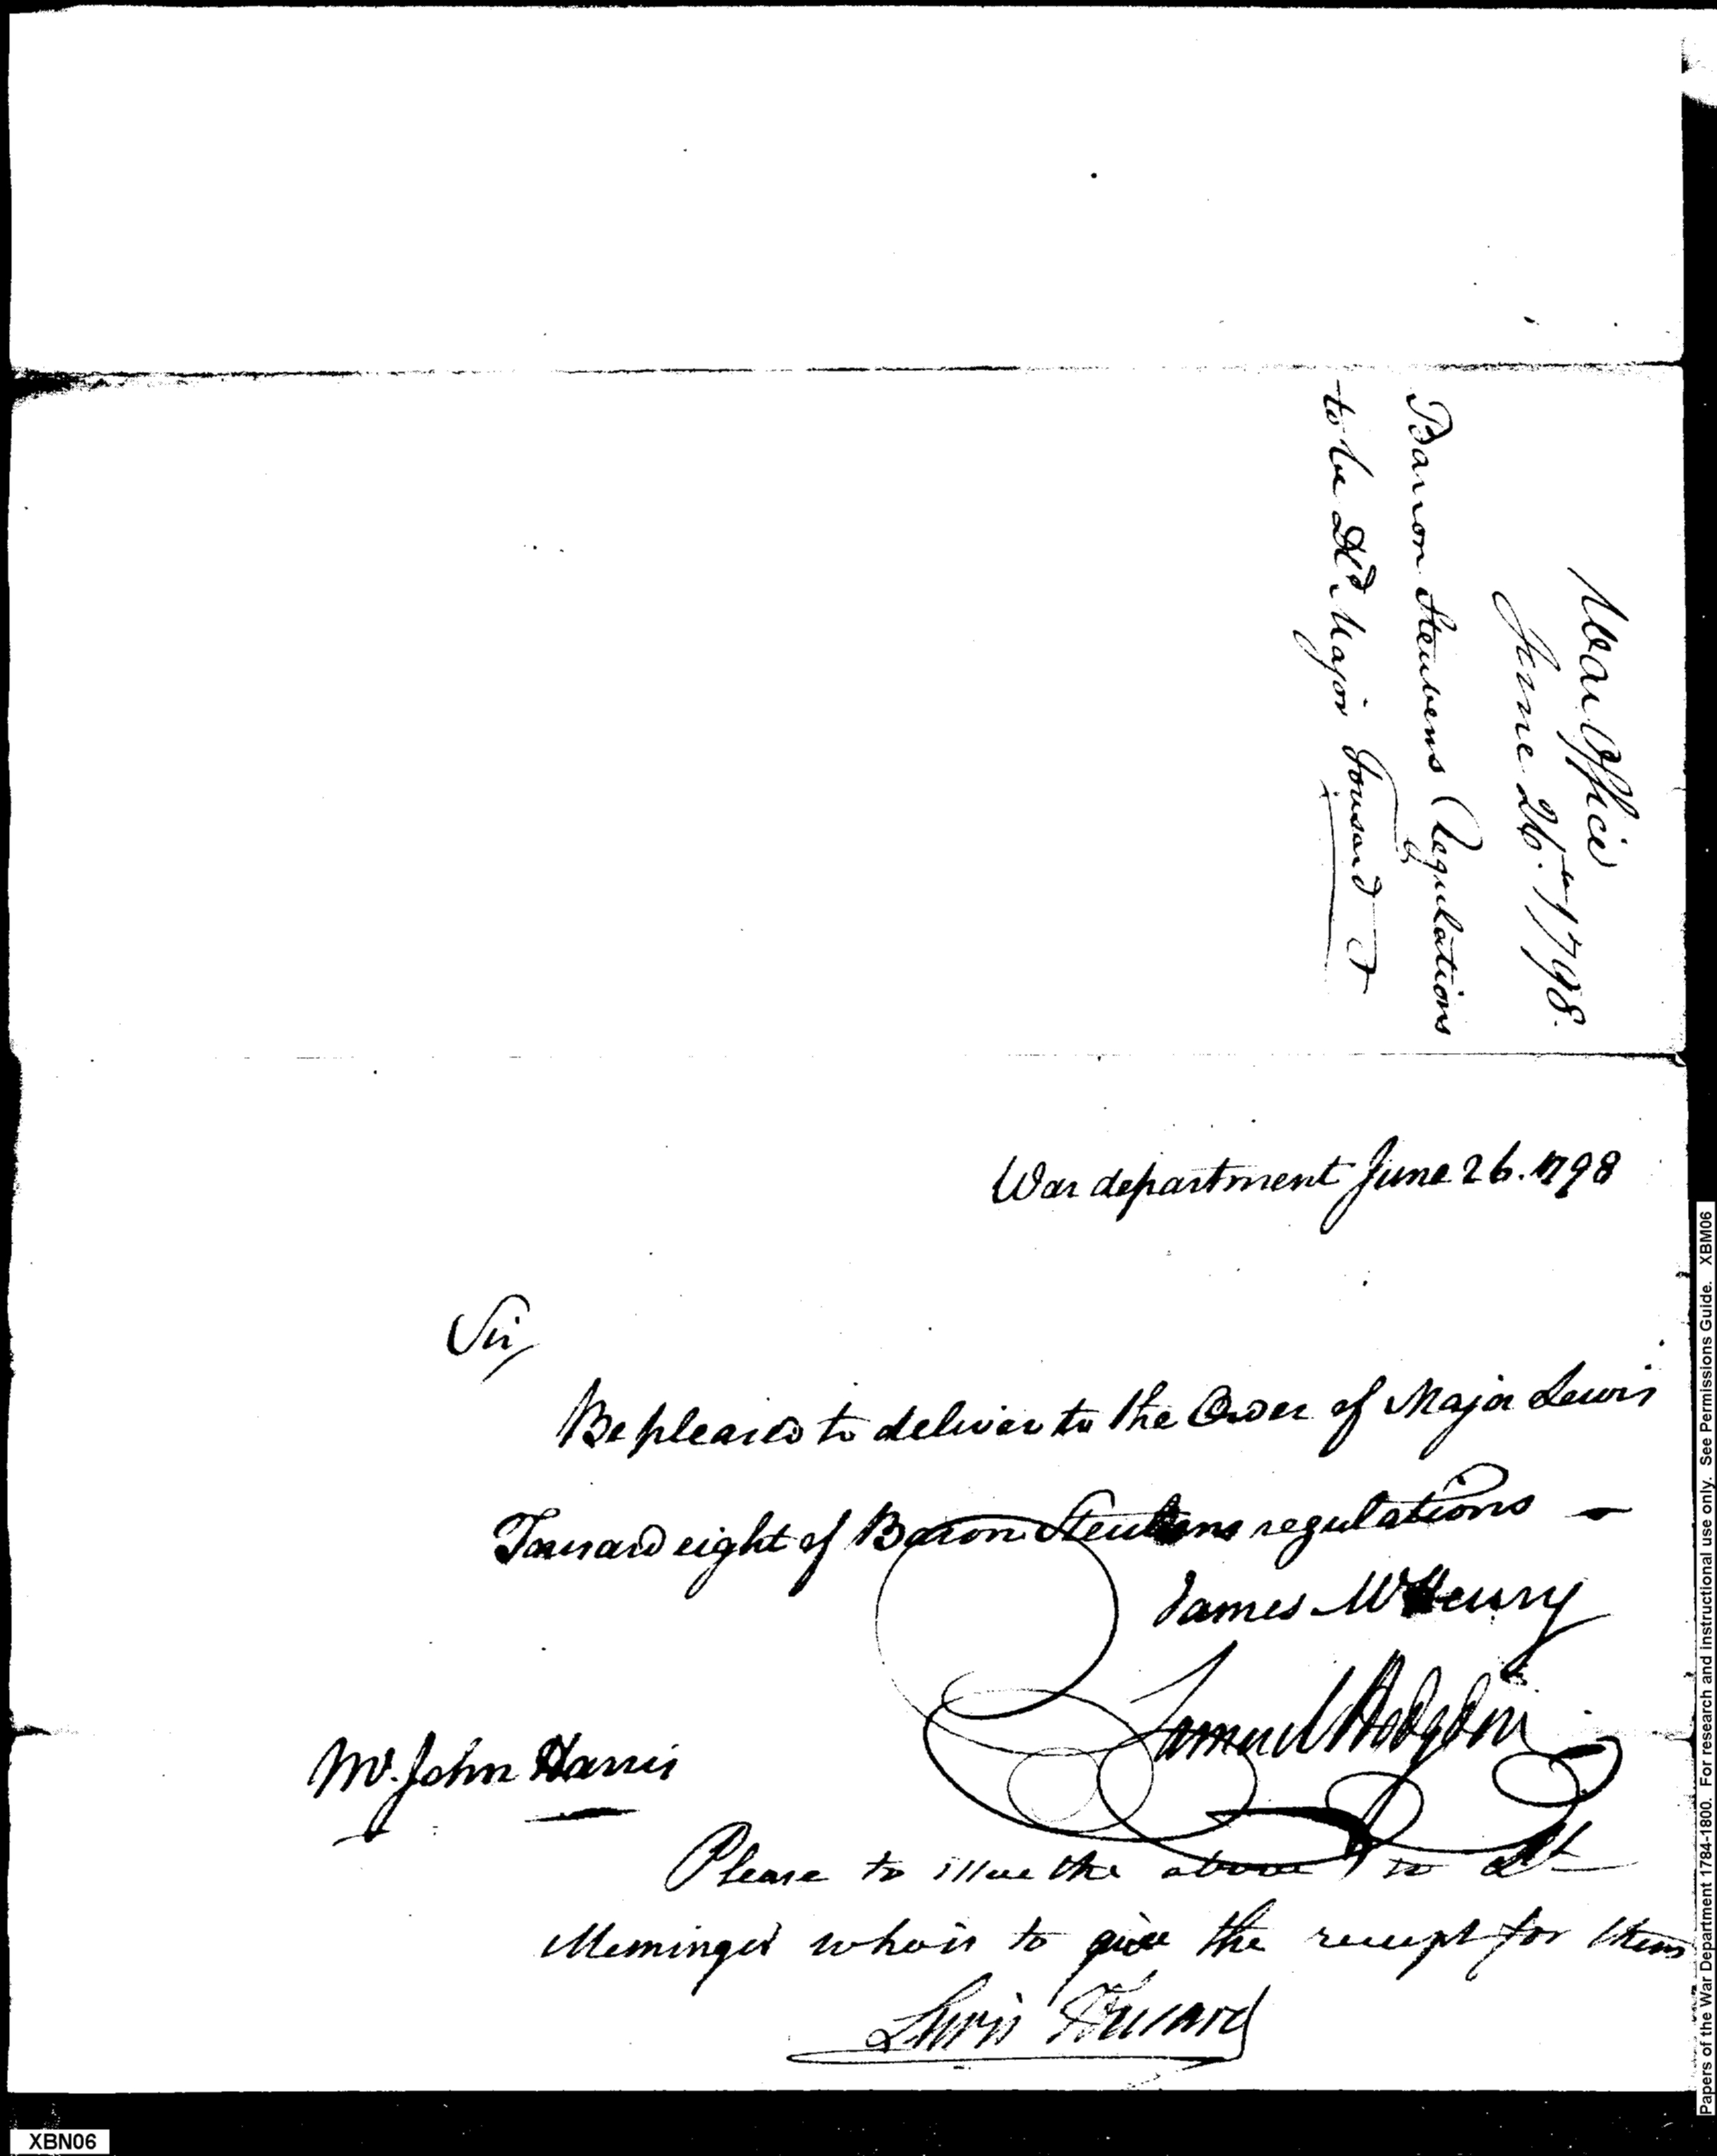 War Office
June 26th 1798.
Barron Steubens Regulations
to be Dd. Major Tousard &
War department June 26. 1798
Sir,
Be pleased to deliver to the Order of Major Lewis
Tousard eight of Baron Steubens regulations —
James McHenry
Samuel Hodgdon
Mr. John Harris
Please to issue the above to Lt
Meminger who is to give the receipt for them
Lewis Tousard
Papers of the War Department 1784-1800. For research and instructional use only. See Permissions Guide. XBM06
XBN06